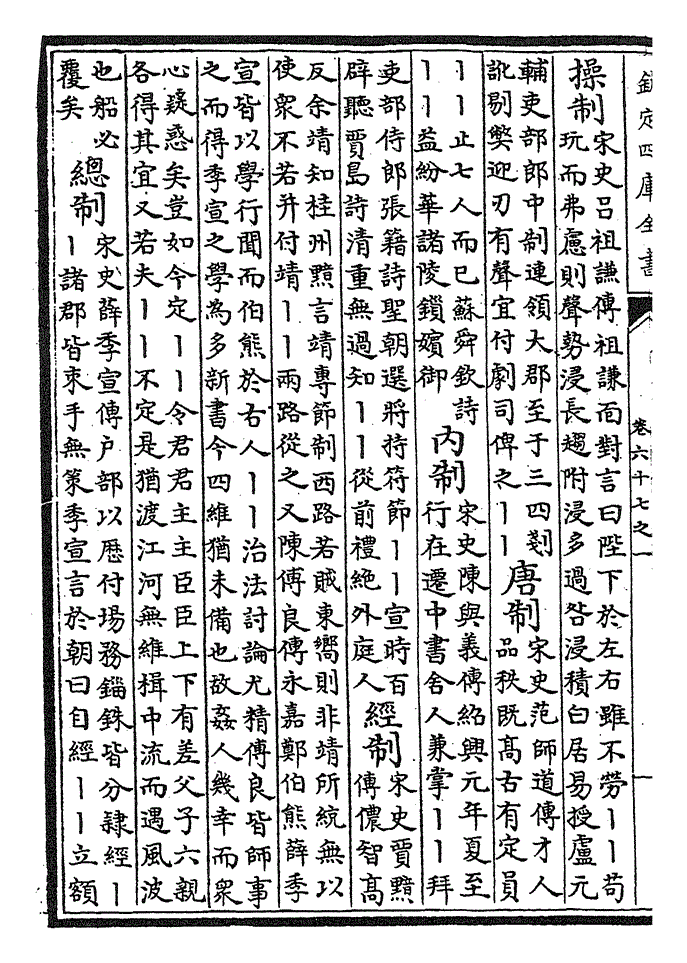 欽定四庫全書
卷六十七之一
操制
宋史吕祖謙傳祖謙面對言曰陛下於左右雖不勞丨丨苟
玩而弗慮則聲勢浸長趨附浸多過咎浸積白居易授盧元
輔吏部郎中制連領大郡至于三四剗
訛剔弊迎刃有聲宜付劇司俾之丨丨
唐制
宋史范師道傳才人
品秩既髙古有定員
丨丨止七人而已蘇舜欽詩
丨丨益紛華諸陵鎖嬪御
内制
宋史陳與義傳紹興元年夏至
行在遷中書舍人兼掌丨丨拜
吏部侍郎張籍詩聖朝選將持符節丨丨宣時百
辟聽賈島詩清重無過知丨丨從前禮絶外庭人
經制
宋史賈黯
傳儂智髙
反余靖知桂州黯言靖專節制西路若賊東嚮則非靖所統無以
使衆不若并付靖丨丨兩路從之又陳傅良傳永嘉鄭伯熊薛季
宣皆以學行聞而伯熊於古人丨丨治法討論尤精傅良皆師事
之而得季宣之學為多新書今四維猶未備也故姦人幾幸而衆
心疑惑矣豈如今定丨丨令君君主主臣臣上下有差父子六親
各得其宜又若夫丨丨不定是猶渡江河無維楫中流而遇風波
也船必
覆矣
總制
宋史薛季宣傳户部以厯付場務錙銖皆分隷經丨
丨諸郡皆束手無策季宣言於朝曰自經丨丨立額